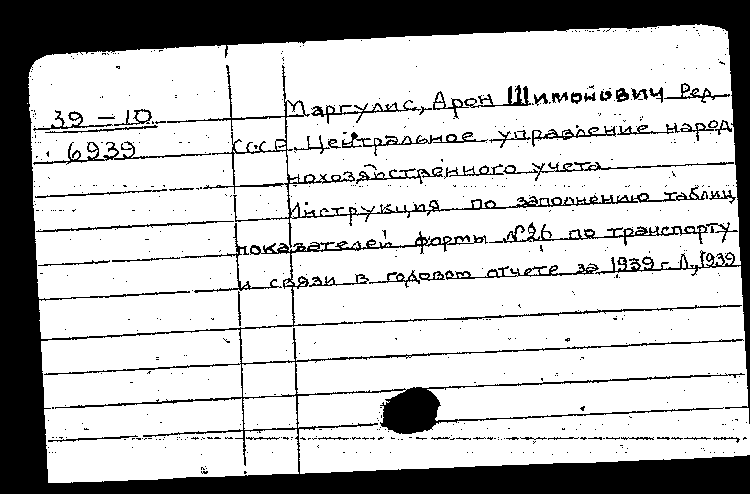 39 – 10
6939
Маргулис, Арон Шимонович Ред.
СССР. Центральное управление народ
нохозяйственного учета
Инструкция по заполнению таблиц
показателей формы №26 по транспорту
и связи в годовом отчете за 1939 г. Л., 1939